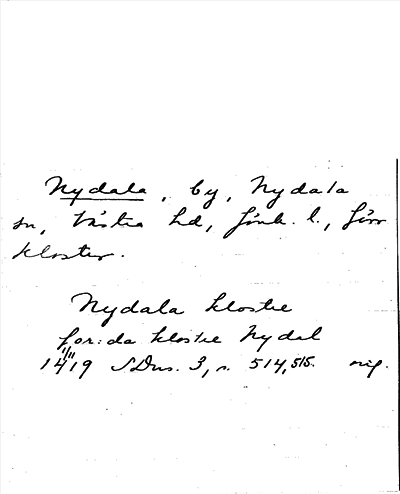 Nydala, by, Nydala
sn, Västra hd, Jönk. l., förr
kloster.
Nydala klostre
for:da klostre Nydal
1/11
1419 SDns. 3, s. 514, 515. orig.